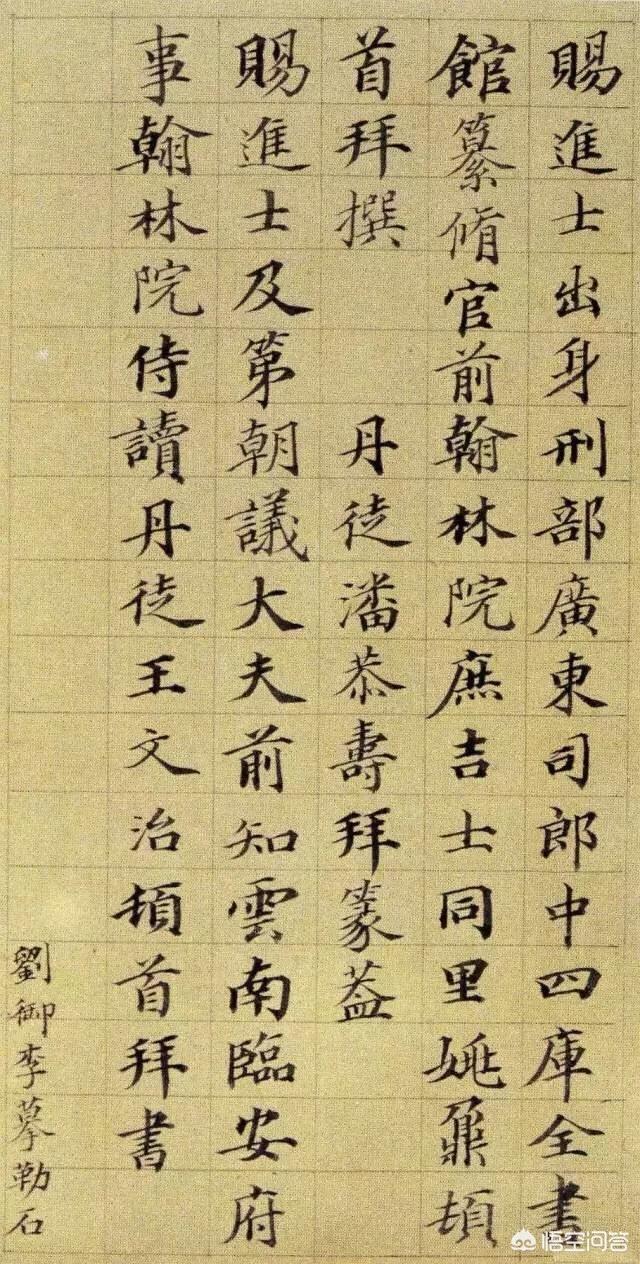 賜進士出身刑部廣東司郎中四庫全書
館纂脩官前翰林院庶吉士同里姚鼐頓
首拜撰 丹徒潘恭壽拜篆蓋
賜進士及第朝議大夫前知雲南臨安府
事翰林院侍讀丹徒王文治頓首拜書
劉御李摹勒石
悟空问答